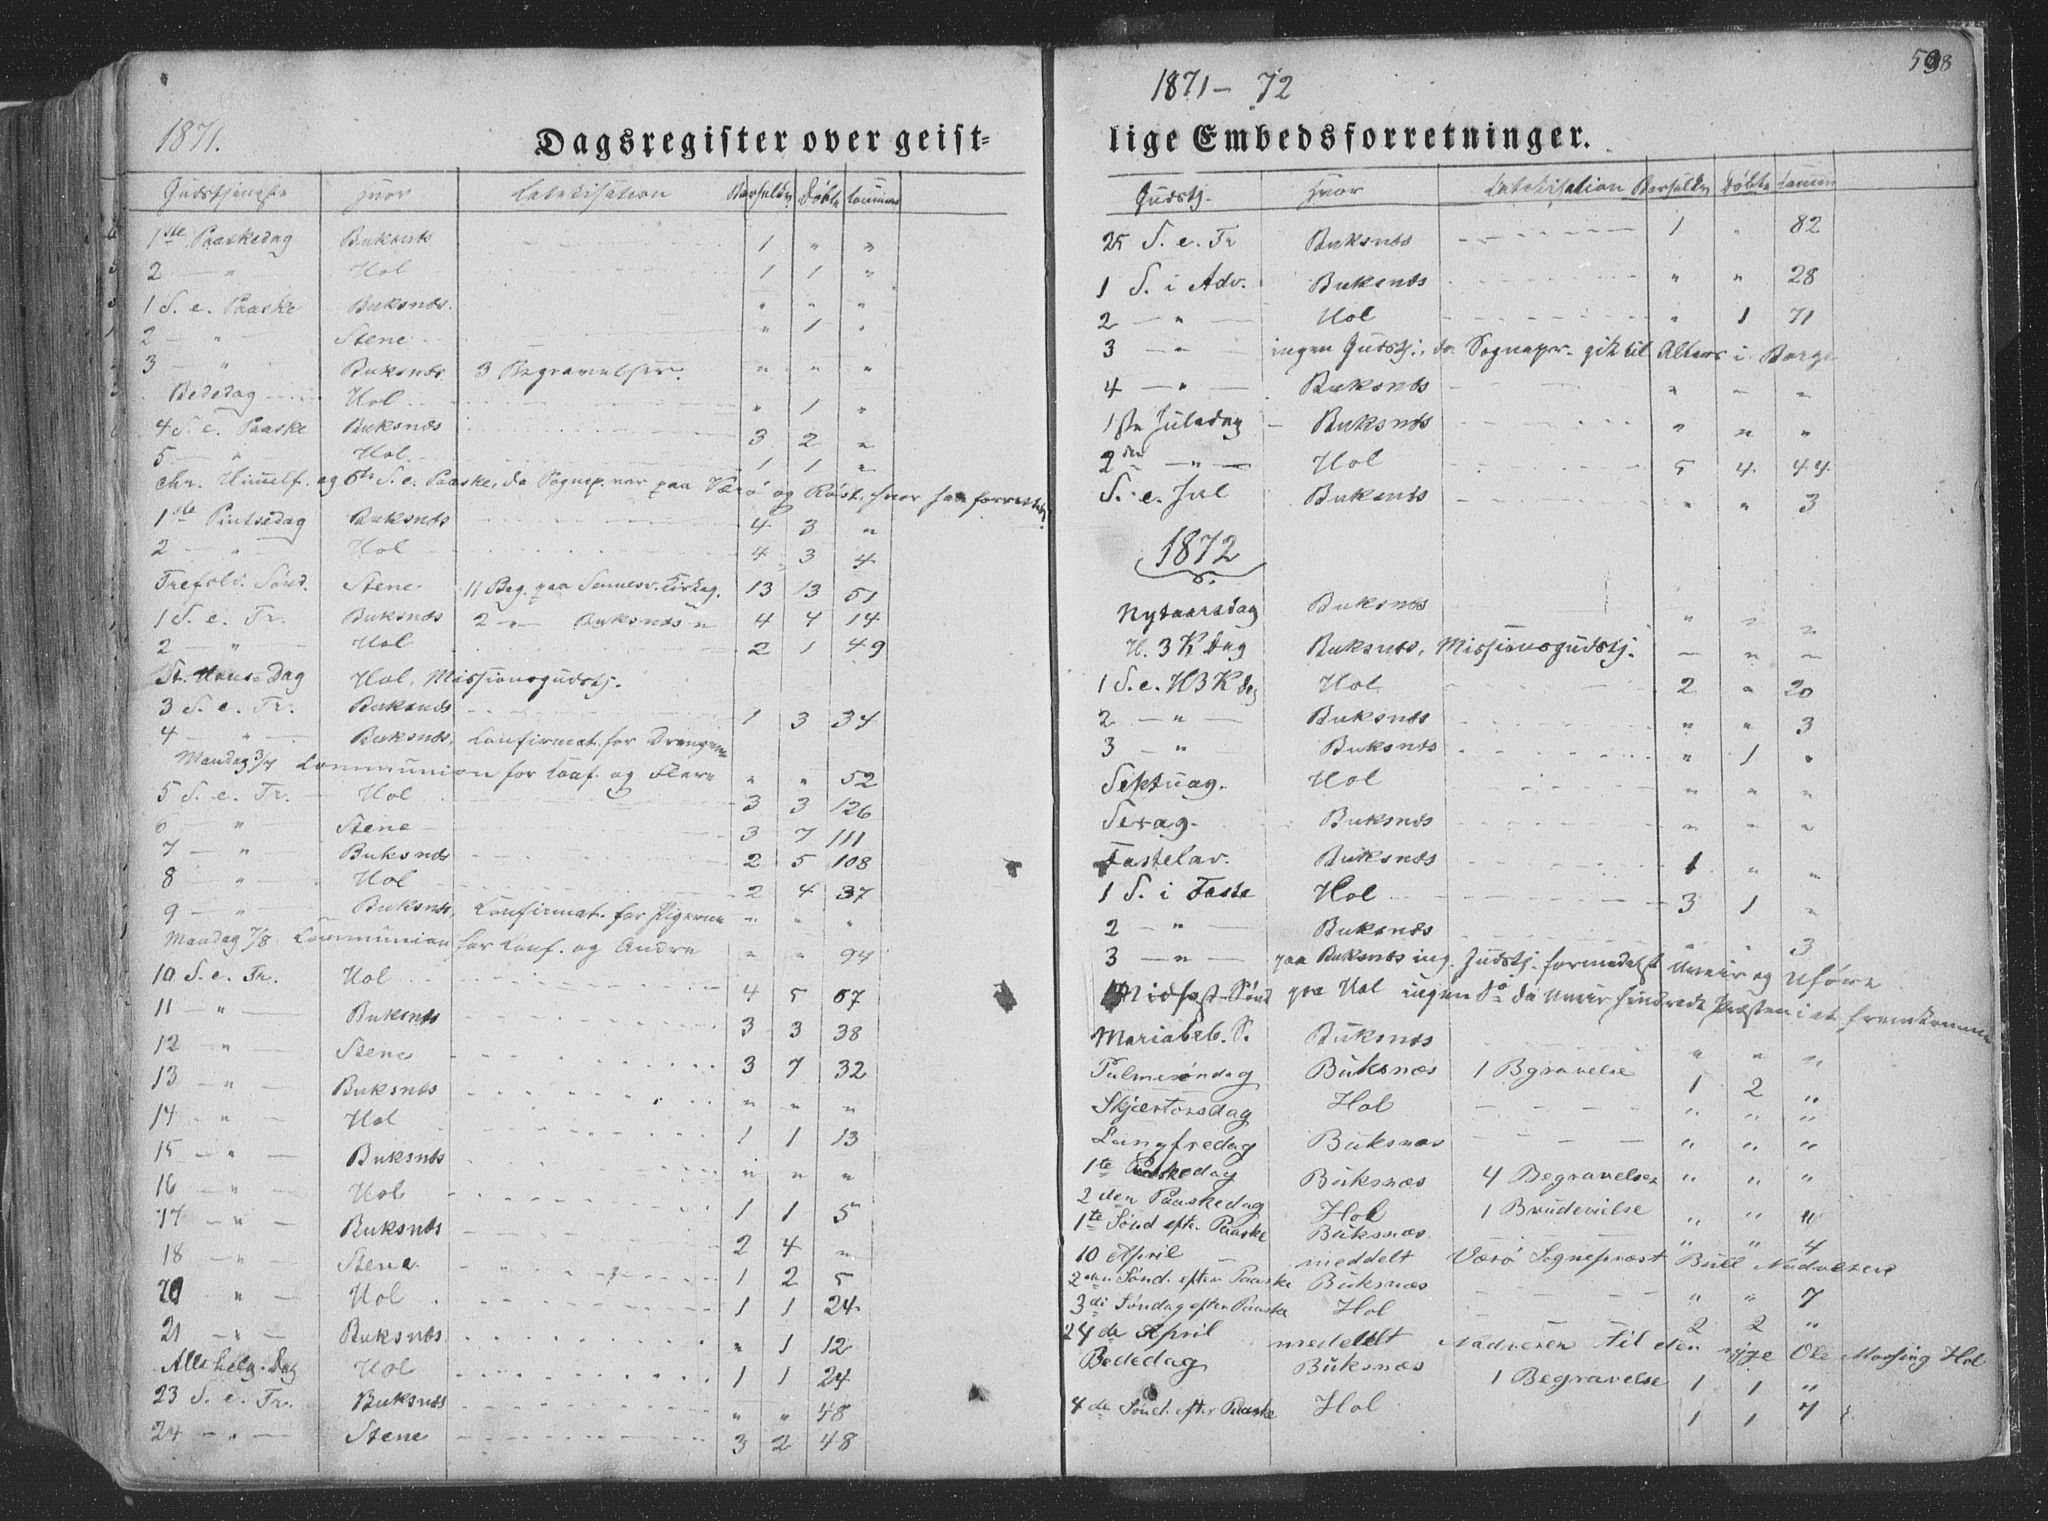 1871.
Dagsregister over geist=
Gudstjeneste Hvor Katekisation Barselkv Døbte Commun
1ste Paaskedag Buksnæs 1 " "
2 — " — Hol 1 1 "
1 S. e. Paaske Buksnæs " " "
2 — " — Stene " 1 "
3 — " Buksnæs 3 Begravelser. " " "
Bededag Hol " 1 "
4 S. e. Paaske Buksnæs 3 2 "
5 — " — Hol 1 1 "
Chr. Himmelf. og 6te S. e. Paaske, da Sognep. var paa Værö og Röst, hvor han forrettet
1ste Pintsedag Buksnæs 4 3 "
2 — " — Hol 4 3 4
Trefold. Sönd. Stene 11 Beg. paa Kirkeg. 13 13 51
1 S. e. Tr. Buksnæs 2 — " — Buksnæs " 4 4 14
2 — " — Hol 2 1 49
St. Hans Dag Hol, Missionsgudstj.
3 S. e. Tr. Buksnæs 1 3 34
4 — " — Buksnæs, Confirmat. for Drengene
Mandag 3/7 Communion for Conf. og Flere " " 52
5 S. e. Tr. Hol 3 3 126
6 — " Stene 3 7 111
7 — " Buksnæs 2 5 108
8 — " — Hol 2 4 37
9 — " — Buksnæs, Confirmat. for Pigerne " " "
Mandag 7/8 Communion for Conf. og Andre " " 94
10 S. e. Tr. Hol 4 5 67
11 — " — Buksnæs 3 3 38
12 — " — Stene 3 7 32
13 — " — Buksnæs " " "
14 — " — Hol 1 1 13
15 — " — Buksnæs " " "
16 — " — Hol 1 1 5
17 — " — Buksnæs 2 4 "
18 — " — Stene 1 2 5
20 — " — Hol 1 1 24
21 — " — Buksnæs " 1 12
Allehelg. Dag Hol 1 1 24
23 S. e. Tr. Buksnæs " " 48
24 — " — Stene 3 2 48
598
1871 – 72
lige Embedsforretninger.
Gudstj. Hvor Katekisation Barselkv Döbte Comm
25 S. e. Tr Buksnæs 1 " 82
1 S. i Adv. Buksnæs " " 28
2 — " — Hol " 1 71
3 — " ingen Gudstj., da Sognepr. gik til Alters i Borge
4 — " — Buksnæs " " "
1ste Juledag Buksnæs " " "
2den — " — Hol 5 4 44
S. e. Jul Buksnæs " " 3
1872
Nytaarsdag Buksnæs " " "
H. 3 K Dag Buksnæs, Missionsgudstj. — " —
1 S. e. H 3 K Dag Hol 2 " 20
2 — " — Buksnæs " " 3
3 — " Buksnæs " 1 "
Septuag. Hol " " "
Sexag. Buksnæs " " "
Fastelav. Buksnæs 1 " "
1 S. i Faste Hol 3 1 "
2 — " — Buksnæs " " 3
3 — " — paa Buksnæs ing. Gudstj. formedelst Uveir og Uföre
Midfast. Sönd paa Hol ingen do da Uveir hindrede Præsten i at fremkomme
Mariabeb. S. Buksnæs " " "
Palmesöndag Buksnæs 1 Bgravelse 1 2 "
Skjærtorsdag Hol " " "
Langfredag Buksnæs " " "
1te Paaskedag Buksnæs 4 Begravelser " " "
2den Paaskedag Hol 1 Brudevielse " " "
1te Sönd efter Paaske Buksnæs " " 4
10 April — meddelt Værö Sognepræst Bull Nadveren
2den Sönd. efter Paaske Buksnæs " " 7
3di Söndag efter Paaske Hol 2 2 "
24de April meddelt Nadveren til den syge Ole Hol
Bededag Buksnæs 1 Begravelse 1 1 "
4de Sönd. efter Paaske Hol 1 1 7